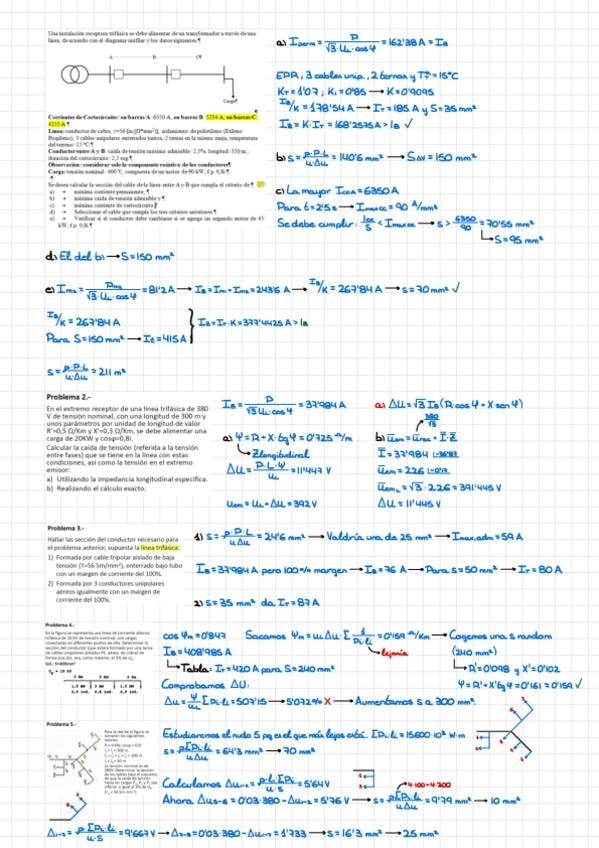 Una instalación receptora trifásica se debe alimentar de un transformador a través de una
línea, de acuerdo con el diagrama unifilar y los datos siguientes:¶
A B C
Carga¶
Corrientes de Cortocircuito: en barras A: 6350 A, en barras B: 5234 A, en barras C:
4155 A¶
Línea: conductor de cobre, γ=56 [m/(Ω*mm²)], aislamiento de polietileno (Etileno
Propileno), 3 cables unipolares enterrados juntos, 2 ternas en la misma zanja, temperatura
del terreno: 15 ºC¶
Conductor entre A y B: caída de tensión máxima admisible: 2,5%, longitud: 350 m.,
duración del cortocircuito: 2,5 seg¶
Observación: considerar solo la componente resistiva de los conductores¶
Carga: tensión nominal: 400 V, compuesta de un motor de 90 kW, f.p. 0,8¶
Se desea calcular la sección del cable de la línea entre A y B que cumpla el criterio de
a) → máxima corriente permanente,
b) → máxima caída de tensión admisible y
c) → máxima corriente de cortocircuito
d) → Seleccionar el cable que cumpla los tres criterios anteriores
e) → Verificar si el conductor debe cambiarse si se agrega un segundo motor de 45
kW, f.p. 0,8¶
a) Iperm = P / √3·UL·cosφ = 162'38A = IB
EPR, 3 cables unip., 2 ternas y Tª = 15ºC
KT = 1'07; K1 = 0'85 → K = 0'9095
IB/K = 178'54A → IT = 185 A y S = 35 mm²
IB = K·IT = 168'2575A > IB ✓
b) s = ρ·P·L / u·Δu = 140'6 mm² → SAV = 150 mm²
c) La mayor ICCA = 6350A
Para t = 2'5s → Imaxcc = 90 A/mm²
Se debe cumplir: Icc/S < Imaxcc → s > 6350/90 = 70'55 mm²
→ S = 95 mm²
d) El del b) → S = 150 mm²
e) Im2 = Pm2 / √3·UL·cosφ = 81'2A → IB = Im1 + Im2 = 243'6 A → IB/K = 267'84A → s = 70 mm² ✓
IB/K = 267'84A
Para S = 150 mm² → It = 415A
IB = IT·K = 377'4425A > IB
s = ρ·P·L / u·Δu = 211 m²
Problema 2.-
En el extremo receptor de una línea trifásica de 380
V de tensión nominal, con una longitud de 300 m y
unos parámetros por unidad de longitud de valor
R'=0,5 Ω/Km y X'=0,3 Ω/Km, se debe alimentar una
carga de 20KW y cosφ=0,8i.
Calcular la caída de tensión (referida a la tensión
entre fases) que se tiene en la línea con estas
condiciones, así como la tensión en el extremo
emisor:
a) Utilizando la impedancia longitudinal específica.
b) Realizando el cálculo exacto.
IB = P / √3 UL·cosφ = 37'984A
a) Ψ = R + X·tgφ = 0'725 Ω/m
Zlongitudinal
ΔU = P·L·Ψ / UL = 11'447 V
uem = UL + ΔU = 392V
a) ΔU = √3 IB (R·cosφ + X senφ)
380/√3
b) Uem = Urec + I·Z
I = 37'984
uem = 226
uemL = √3·226 = 391'445V
ΔU = 11'445V
Problema 3.-
Hallar las sección del conductor necesario para
el problema anterior, supuesta la línea trifásica:
1) Formada por cable tripolar aislado de baja
tensión (Y=56 Sm/mm²), enterrado bajo tubo
con un margen de corriente del 100%.
2) Formada por 3 conductores unipolares
aéreos igualmente con un margen de
corriente del 100%.
1) s = ρ·P·L / u Δu = 24'6 mm² → Valdría una de 25 mm² → Imax,adm = 59A
IB = 37'984A pero 100% margen → IB = 76 A → Para s = 50 mm² → IT = 80A
2) s = 35 mm² da IT = 87A
Problema 4.-
cosφm = 0'847 Sacamos Ψm = UL ΔU·Σ 1/Pi·Li = 0'159 Ω/Km → Cogemos una s random
(240 mm²)
lejanía
IB = 408'985A
→ Tabla: IT = 420A para S = 240 mm²
→ R' = 0'098 y X' = 0'102
Ψ = R' + X'tgφ = 0'161 ≈ 0'159 ✓
Comprobamos ΔU:
ΔU = Ψ/UL Σ Pi·Li = 507'15 → 5'072% X → Aumentamos s a 300 mm².
Problema 5.-
Estudiaremos el nudo 5 pq es el que más lejos está. ΣPi·Li = 15600·10³ W·m
s = ρΣPi·Li / u·Δu = 64'3 mm² → 70 mm²
Calculamos ΔU1-2 = ρ·L·ΣPi / u·s = 5'64V
4·100+4·200
Ahora ΔU5-6 = 0'03·380 - ΔU1-2 = 5'76 V → s = ρΣPi·Li / u·Δu = 9'79 mm² → 10 mm²
Δ1-7 = ρΣPi·Li / u·s = 9'667V → Δ7-8 = 0'03·380 - ΔU1-7 = 1'733 → s = 16'3 mm² → 25 mm²